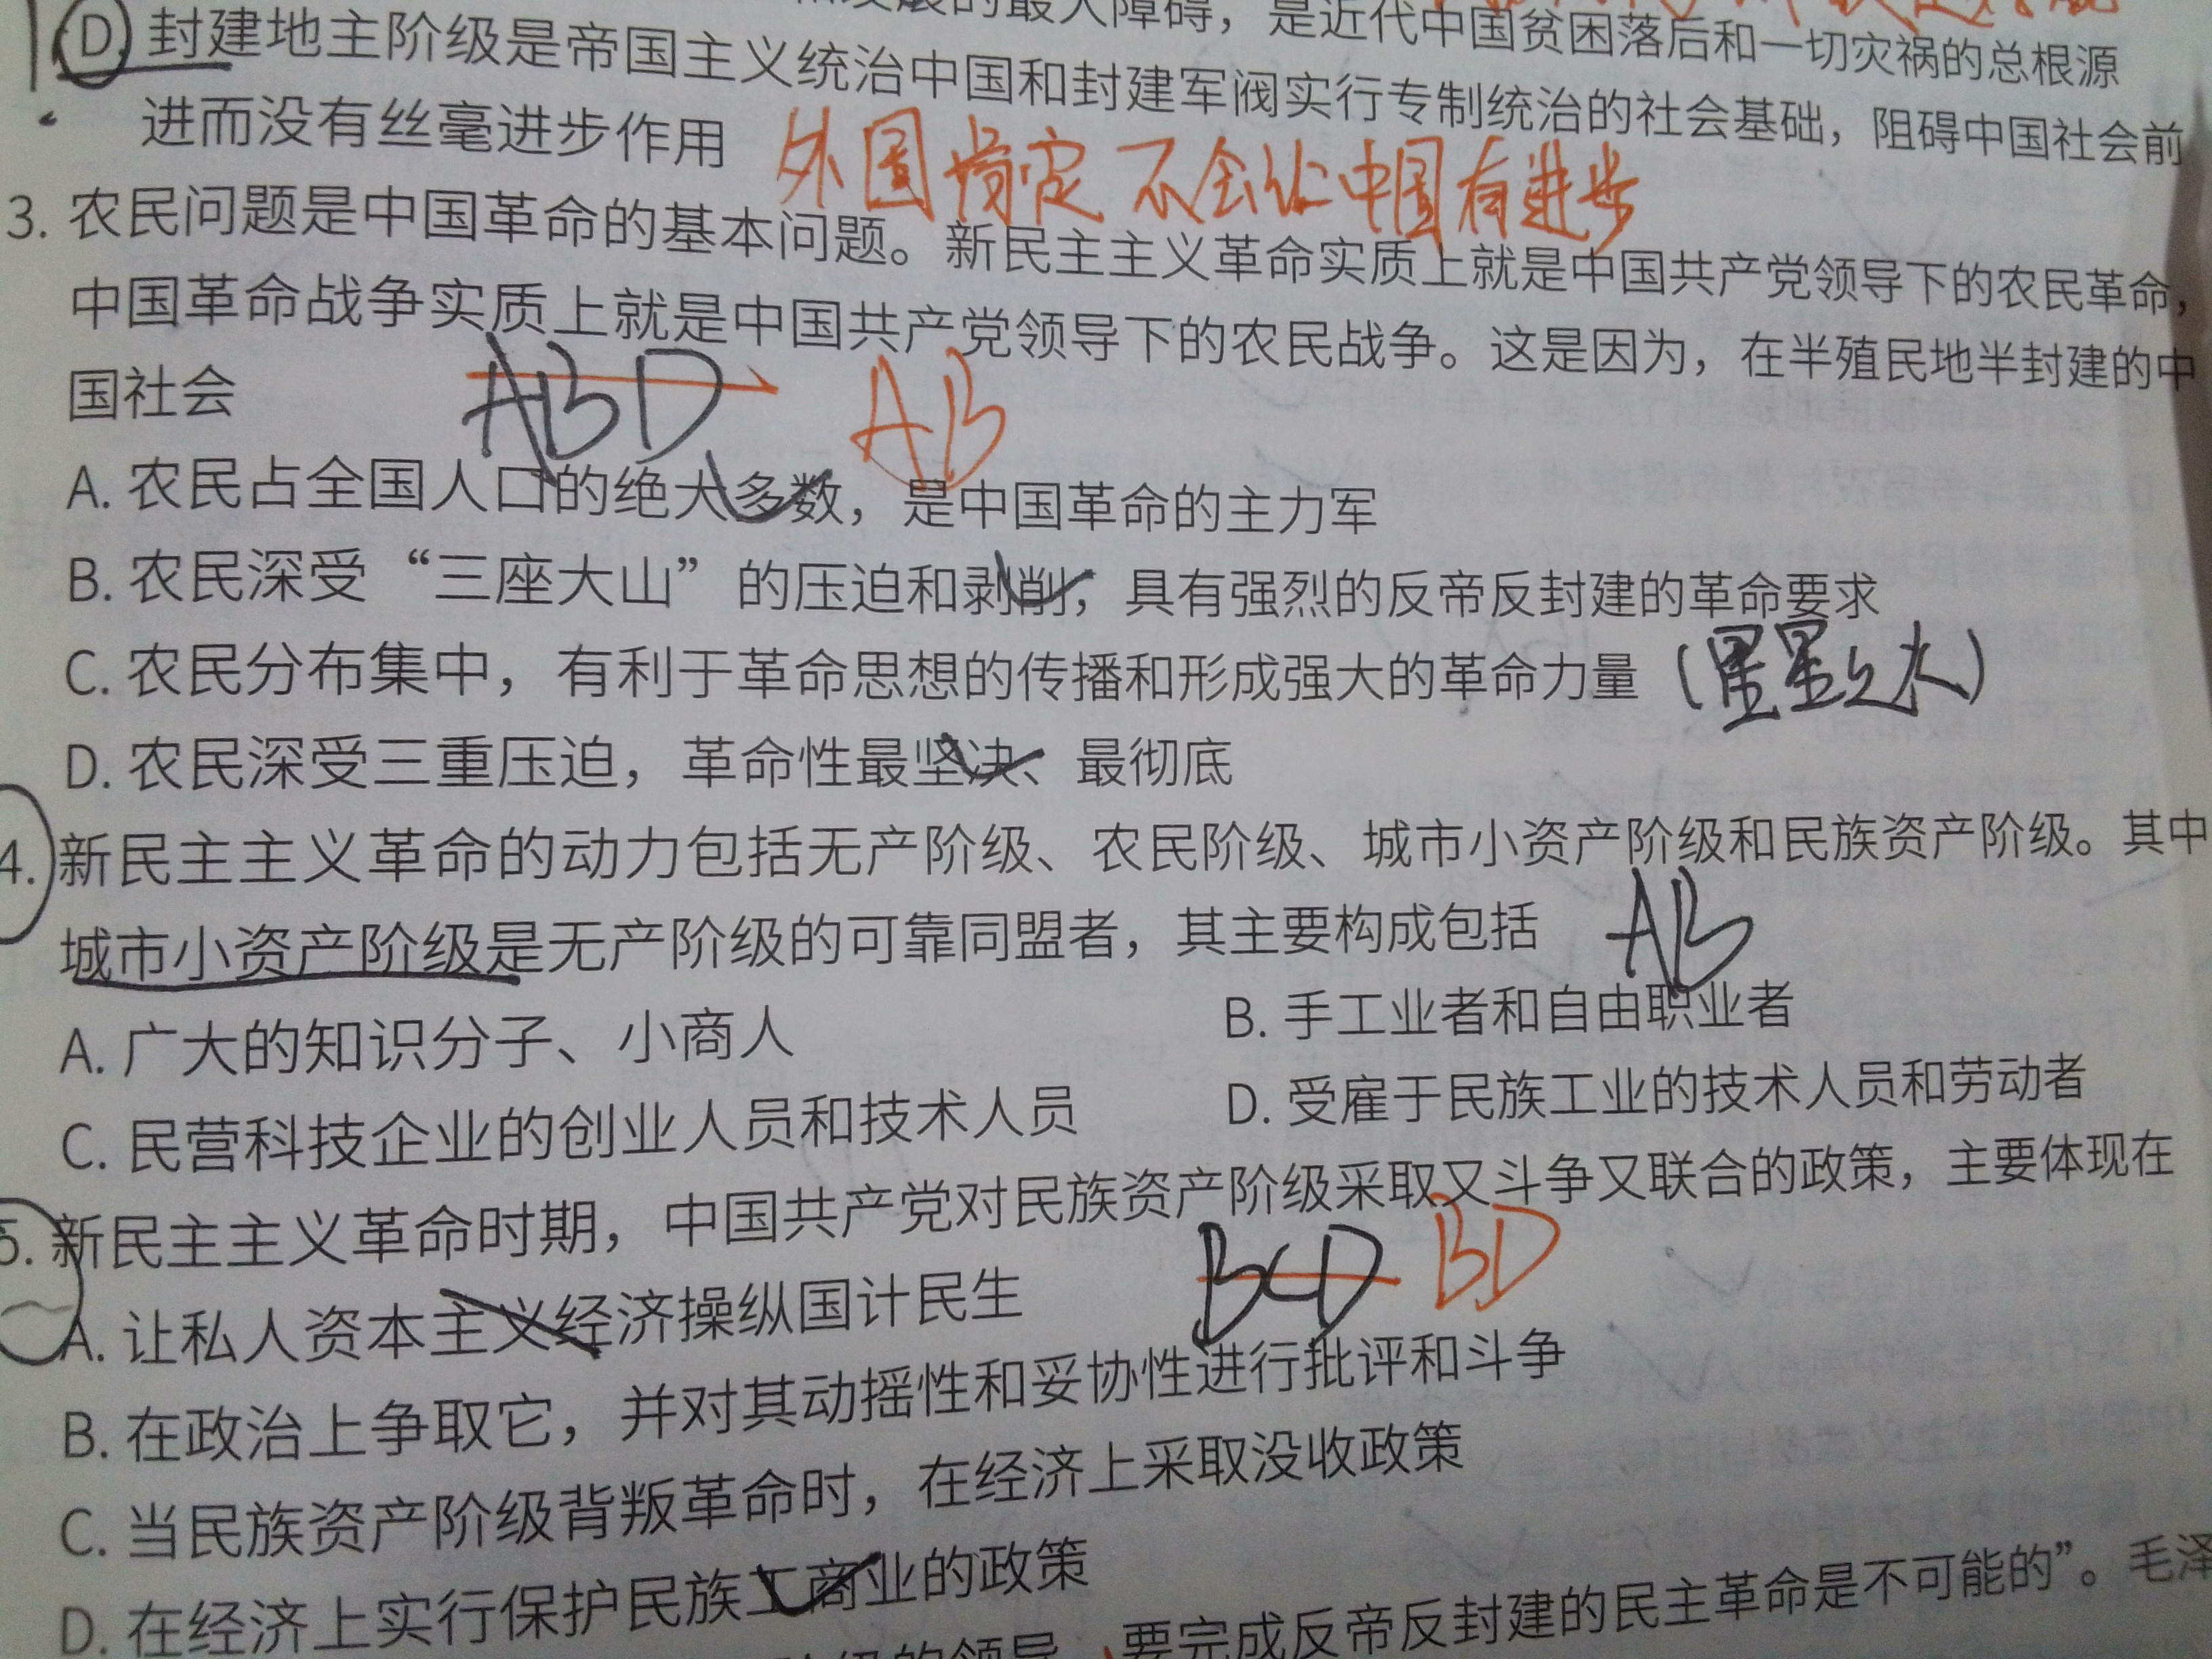 发展的最大障碍，是近代中国贫困落后和一切灾祸的总根源
D. 封建地主阶级是帝国主义统治中国和封建军阀实行专制统治的社会基础，阻碍中国社会前
进而没有丝毫进步作用
外国肯定不会让中国有进步
3. 农民问题是中国革命的基本问题。新民主主义革命实质上就是中国共产党领导下的农民革命，
中国革命战争实质上就是中国共产党领导下的农民战争。这是因为，在半殖民地半封建的中
国社会
ABD AB
A. 农民占全国人口的绝大多数，是中国革命的主力军
B. 农民深受“三座大山”的压迫和剥削，具有强烈的反帝反封建的革命要求
C. 农民分布集中，有利于革命思想的传播和形成强大的革命力量（星星之火）
D. 农民深受三重压迫，革命性最坚决、最彻底
4. 新民主主义革命的动力包括无产阶级、农民阶级、城市小资产阶级和民族资产阶级。其中
城市小资产阶级是无产阶级的可靠同盟者，其主要构成包括 AB
A. 广大的知识分子、小商人 B. 手工业者和自由职业者
C. 民营科技企业的创业人员和技术人员 D. 受雇于民族工业的技术人员和劳动者
5. 新民主主义革命时期，中国共产党对民族资产阶级采取又斗争又联合的政策，主要体现在
BCD BD
A. 让私人资本主义经济操纵国计民生
B. 在政治上争取它，并对其动摇性和妥协性进行批评和斗争
C. 当民族资产阶级背叛革命时，在经济上采取没收政策
D. 在经济上实行保护民族工商业的政策
阶级的领导，要完成反帝反封建的民主革命是不可能的”。毛泽